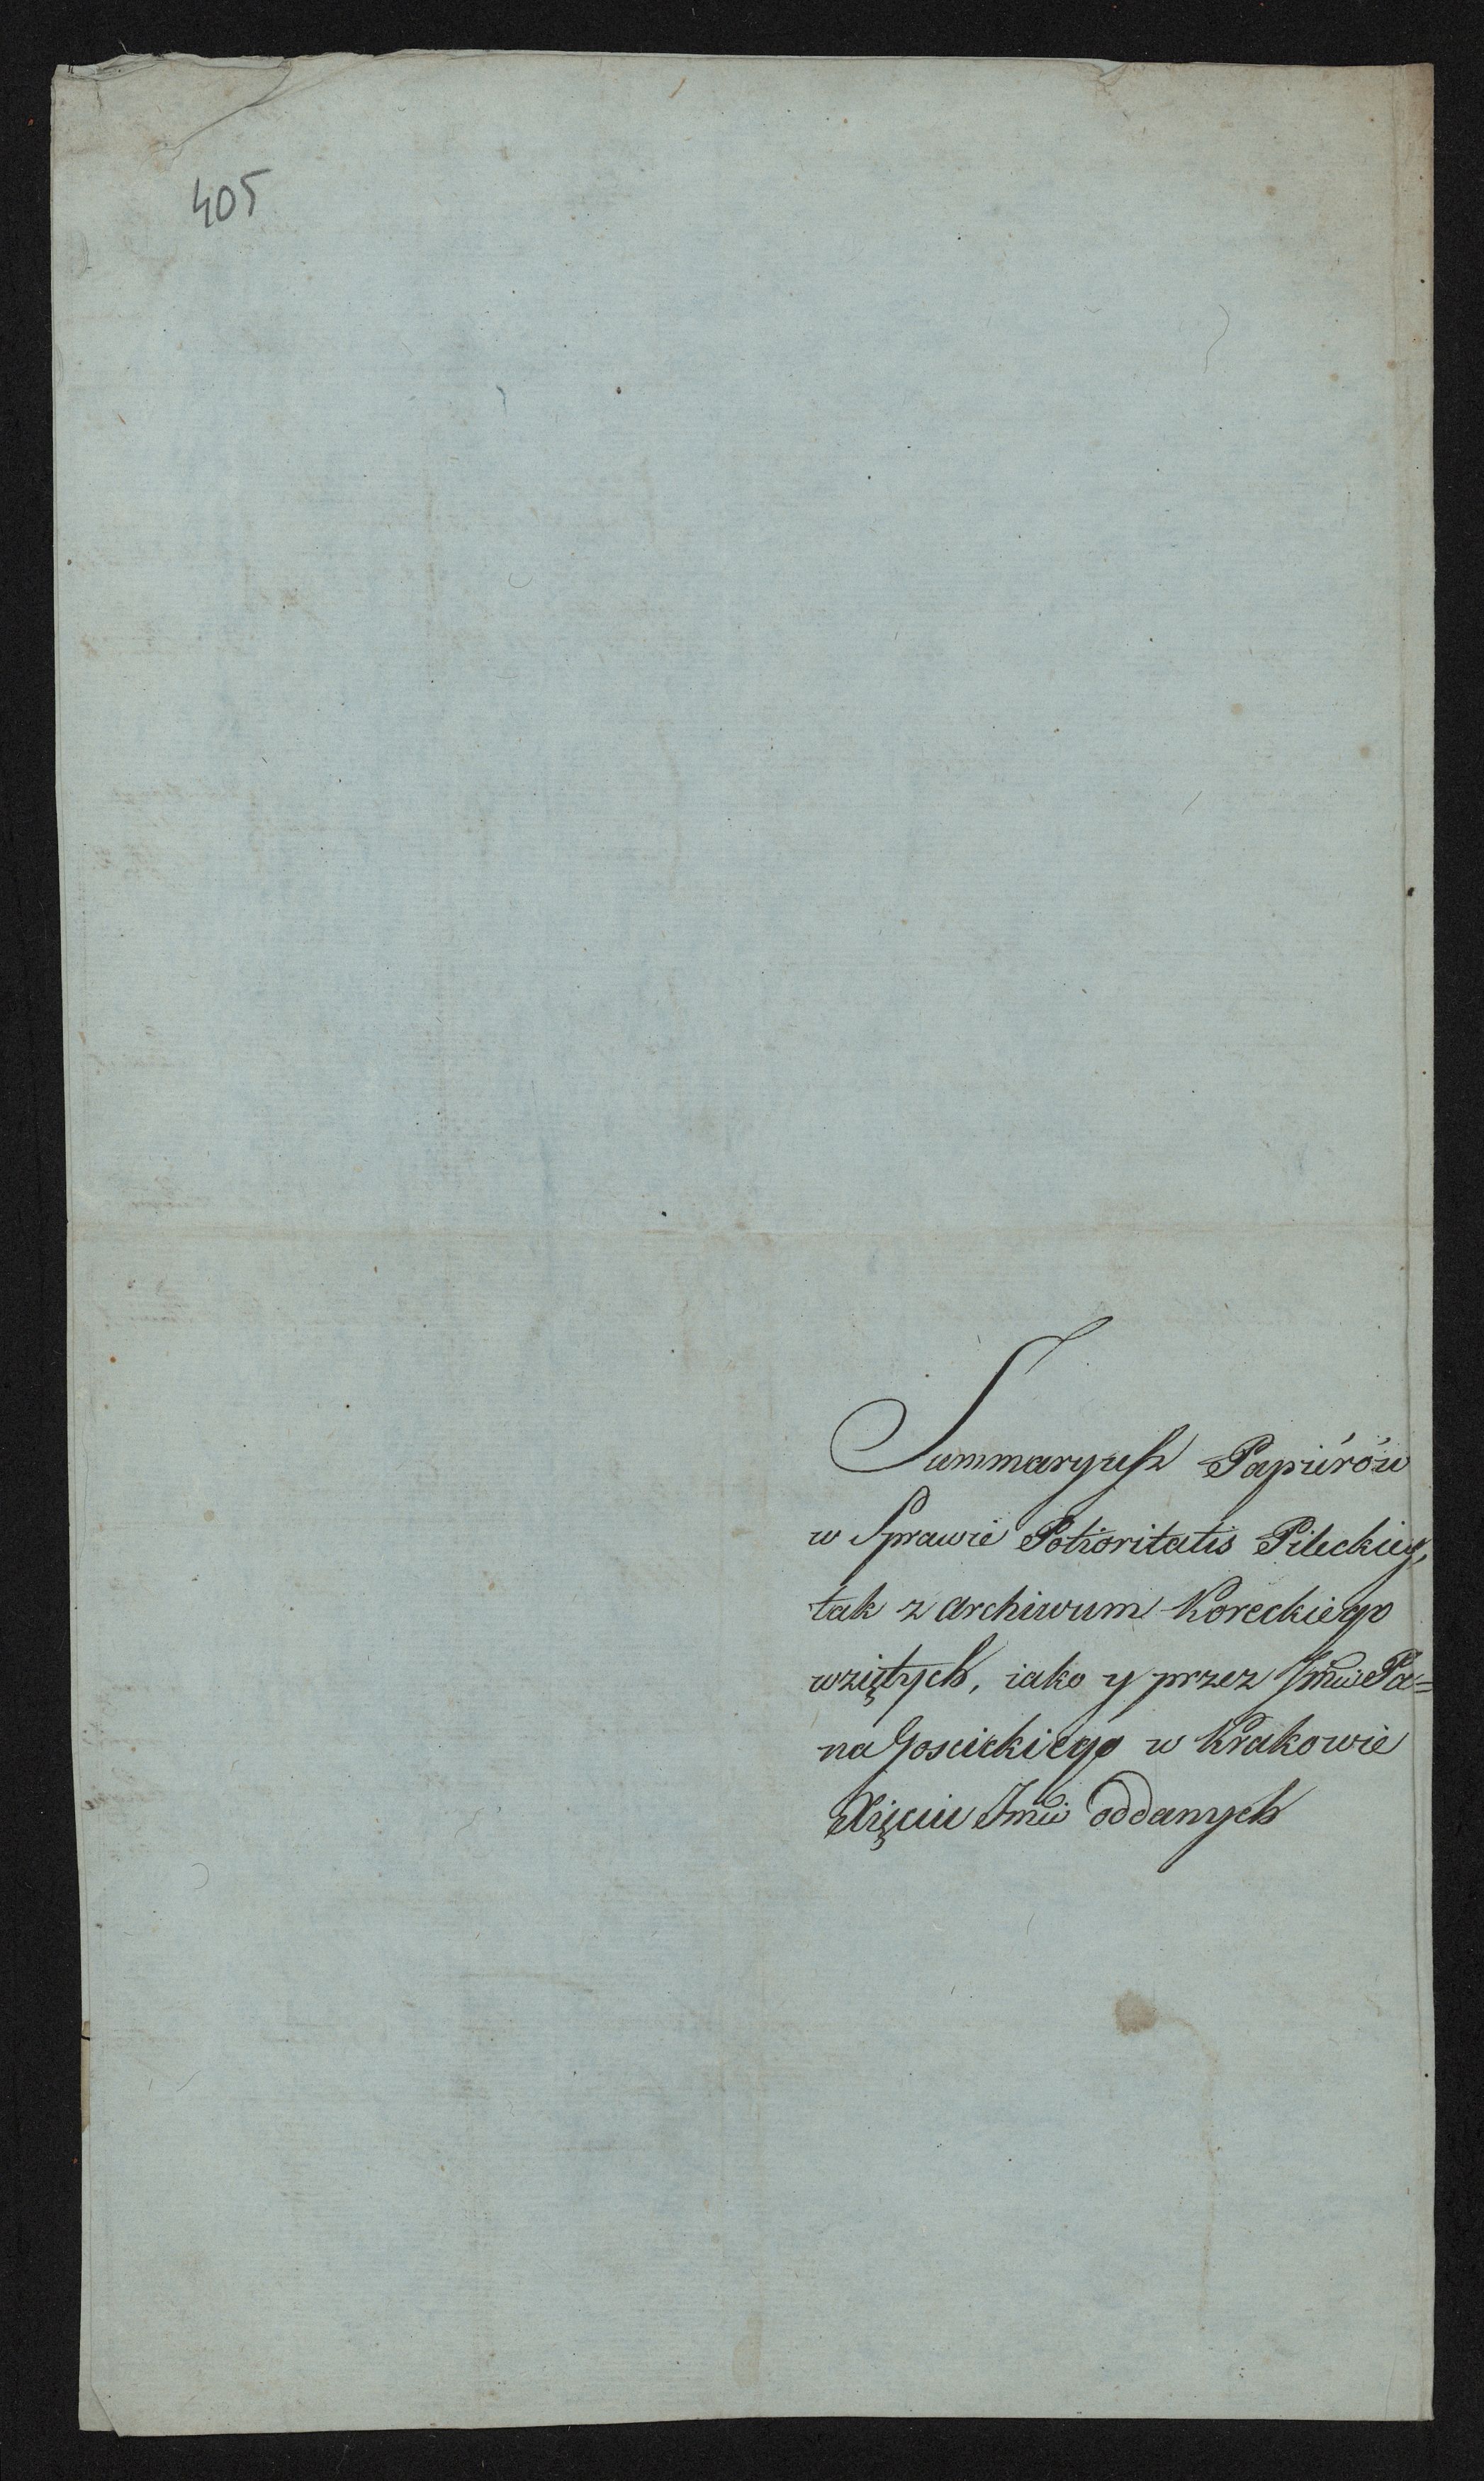 405
Summaryusz Papiérów
w Sprawie Potioritatis Pileckiey,
tak z archiwum Koreckiego
wziętych, iako y przez Jmci Pa=
na Goscickiego w Krakowie
Xięciu Jmci oddanych